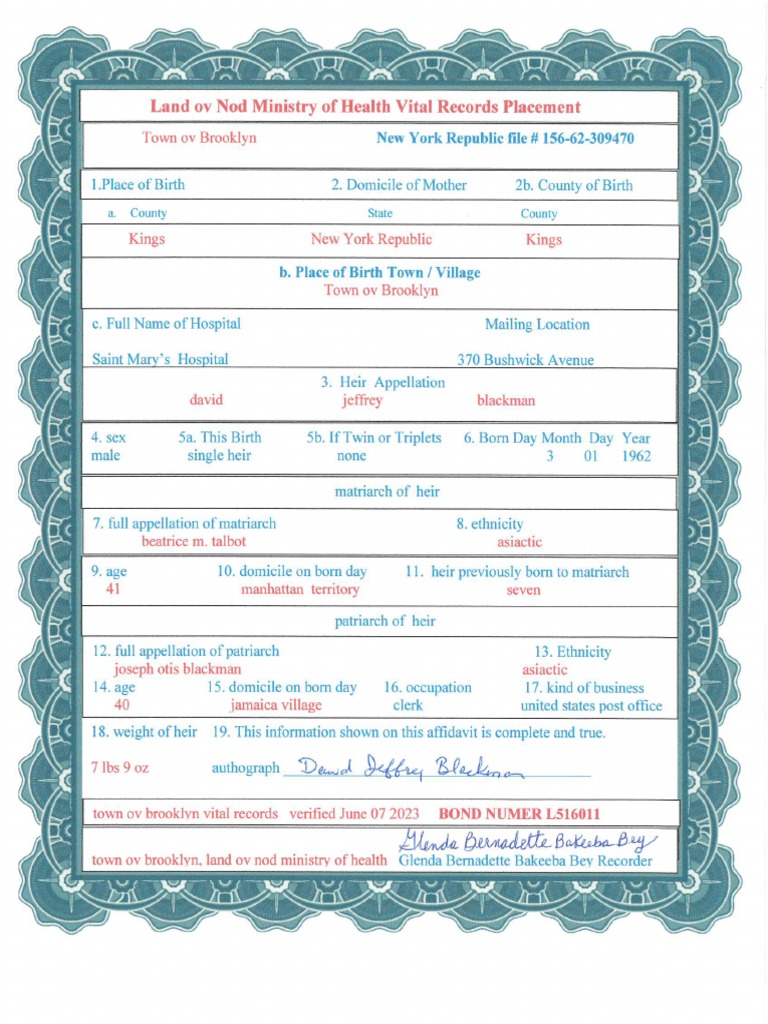 Land ov Nod Ministry of Health Vital Records Placement
Town ov Brooklyn New York Republic file # 156-62-309470
1.Place of Birth 2. Domicile of Mother 2b. County of Birth
a. County State County
Kings New York Republic Kings
b. Place of Birth Town / Village
Town ov Brooklyn
c. Full Name of Hospital Mailing Location
Saint Mary's Hospital 370 Bushwick Avenue
3. Heir Appellation
david jeffrey blackman
4. sex 5a. This Birth 5b. If Twin or Triplets 6. Born Day Month Day Year
male single heir none 3 01 1962
matriarch of heir
7. full appellation of matriarch 8. ethnicity
beatrice m. talbot asiactic
9. age 10. domicile on born day 11. heir previously born to matriarch
41 manhattan territory seven
patriarch of heir
12. full appellation of patriarch 13. Ethnicity
joseph otis blackman asiactic
14. age 15. domicile on born day 16. occupation 17. kind of business
40 jamaica village clerk united states post office
18. weight of heir 19. This information shown on this affidavit is complete and true.
7 lbs 9 oz authograph David Jeffrey Blackman
town ov brooklyn vital records verified June 07 2023 BOND NUMER L516011
Glenda Bernadette Bakeeba Bey
town ov brooklyn, land ov nod ministry of health Glenda Bernadette Bakeeba Bey Recorder